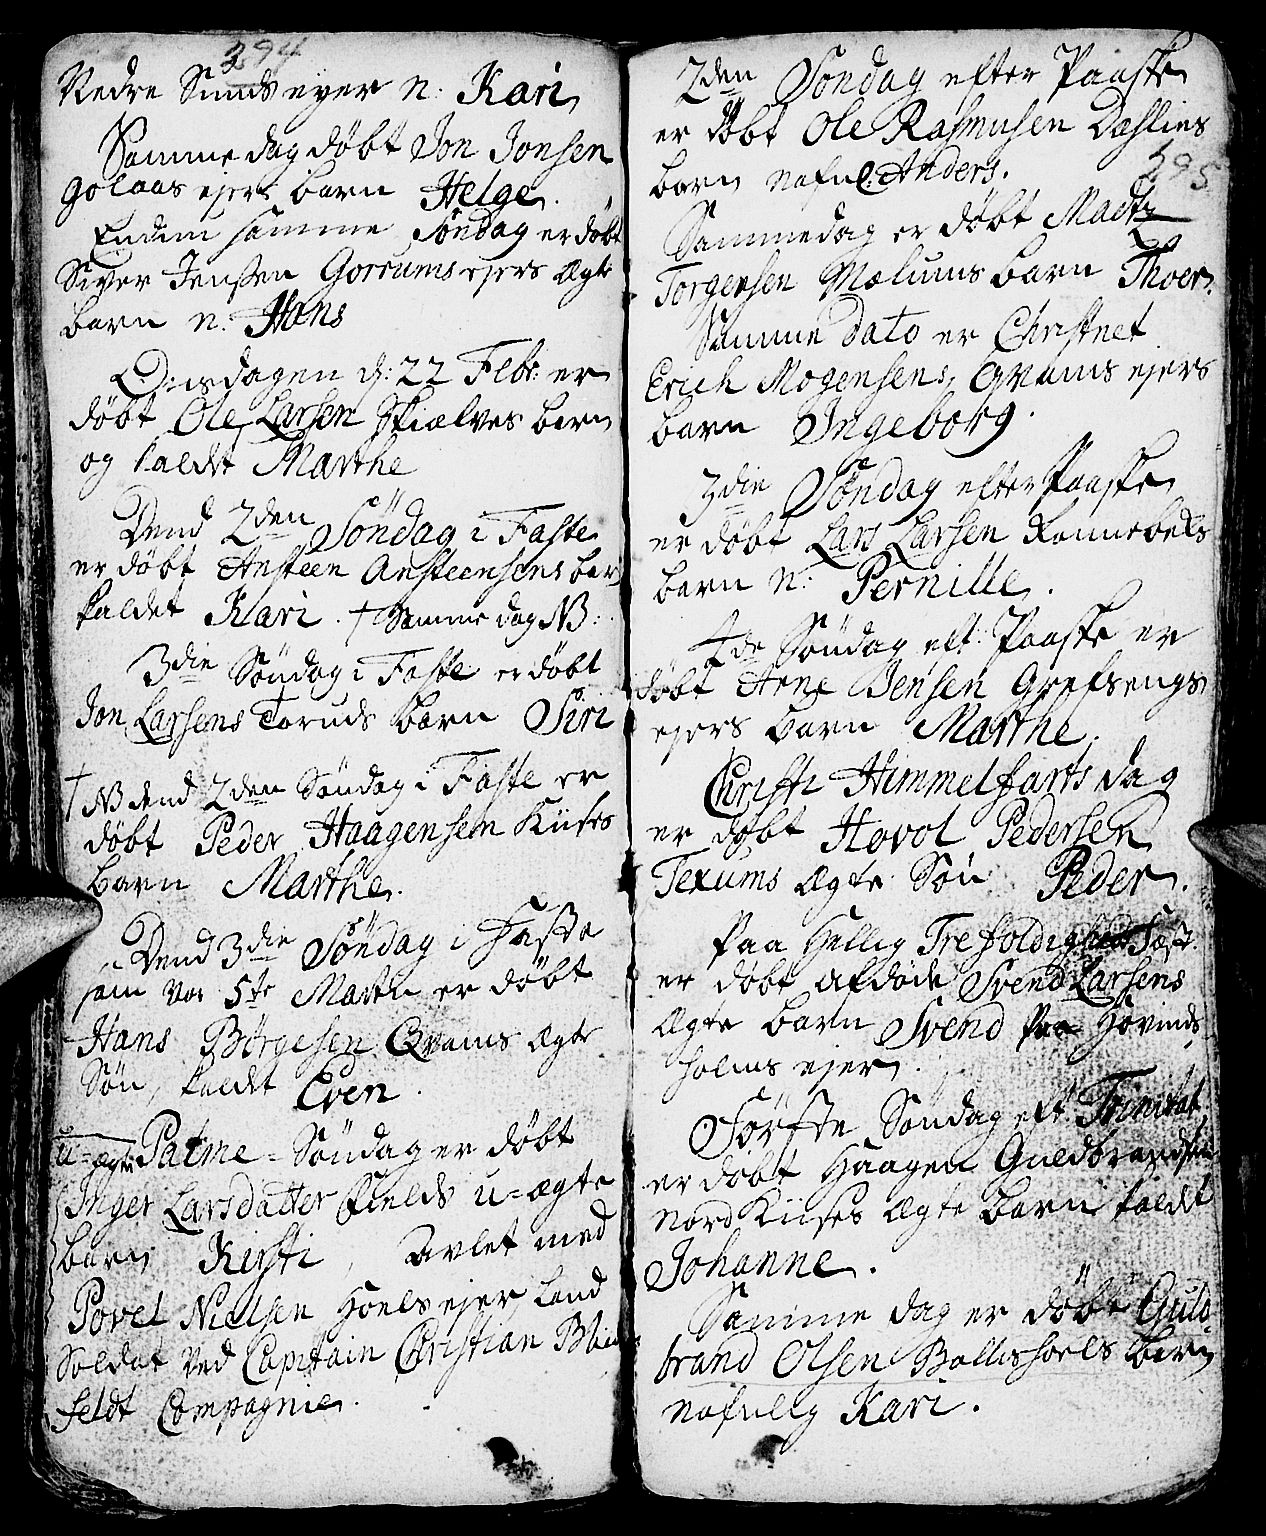 294
Nedre Sunds eyer N: Kari
Samme dag døbt Jon Jonsen
golaas ejers barn Helge.
Endnu samme Søndag er døbt
Siver Jenssen Gorrums ejers Ægte
barn n. Hans
Onsdagen d: 22 Febr: er
døbt Ole Larsen Skiælves barn
og kaldt Marthe
Dend 2den Søndag i Faste
er døbt Ansteen Ansteensens barn
kaldet Kari. † Samme dag NB:
3die Søndag i Faste er døbt
Jon Larsens Toruds barn Siri
† NB dend 2den Søndag i Faste er
døbt Peder Haagensen Kiises
barn Marthe.
Dend 3die Søndag i Faste
som var 5te Martii er døbt
Hans Børgesen Qvams Ægte
Søn, kaldt Even.
u-ægte Palme-Søndag er døbt
Inger Larsdatter Fields u-ægte
barn Kirsti, Avlet med
Povel Nielsen Hoels ejer, Land
Soldat ved Capitain Christian
feldt Compagnie.
295
2den Søndag efter Paaske
er døbt Ole Rasmusen Dæhlins
barn nafnl. Anders.
Sammedag er døbt Madtz
Torgersen Mælums barn Thoer.
Samme dato er Christnet
Erich Mogensens, Qvams ejers
barn Ingeborg.
3die Søndag efter Paaske
er døbt Lars Larsen Ronnebeks
barn N: Pernille.
4de Søndag eft: Paaske er
døbt Arne Jensen Grefsengs
ejers barn Marthe.
Christi Himmelfarts dag
er døbt Hovol Pedersen
Texums Ægte Søn Peder.
Paa Hellig Trefoldigheds Fæst
er døbt afdøde Svend Larsens
Ægte barn Svend paa Hovinds
holms ejer.
Første Søndag eft Trinitat.
er døbt Haagen Guldbrandsen
Nord Kiises Ægte barn kaldt
Johanne.
Samme dag er døbt Guld
brand Olsen Ballishoels barn
nafnlig Kari.